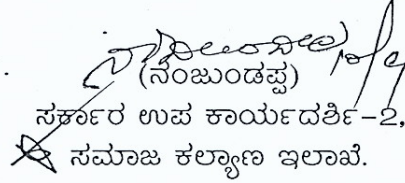 (ನಂಜುಂಡಪ್ಪ)
ಸರ್ಕಾರ ಉಪ ಕಾರ್ಯದರ್ಶಿ-2,
ಸಮಾಜ ಕಲ್ಯಾಣ ಇಲಾಖೆ.